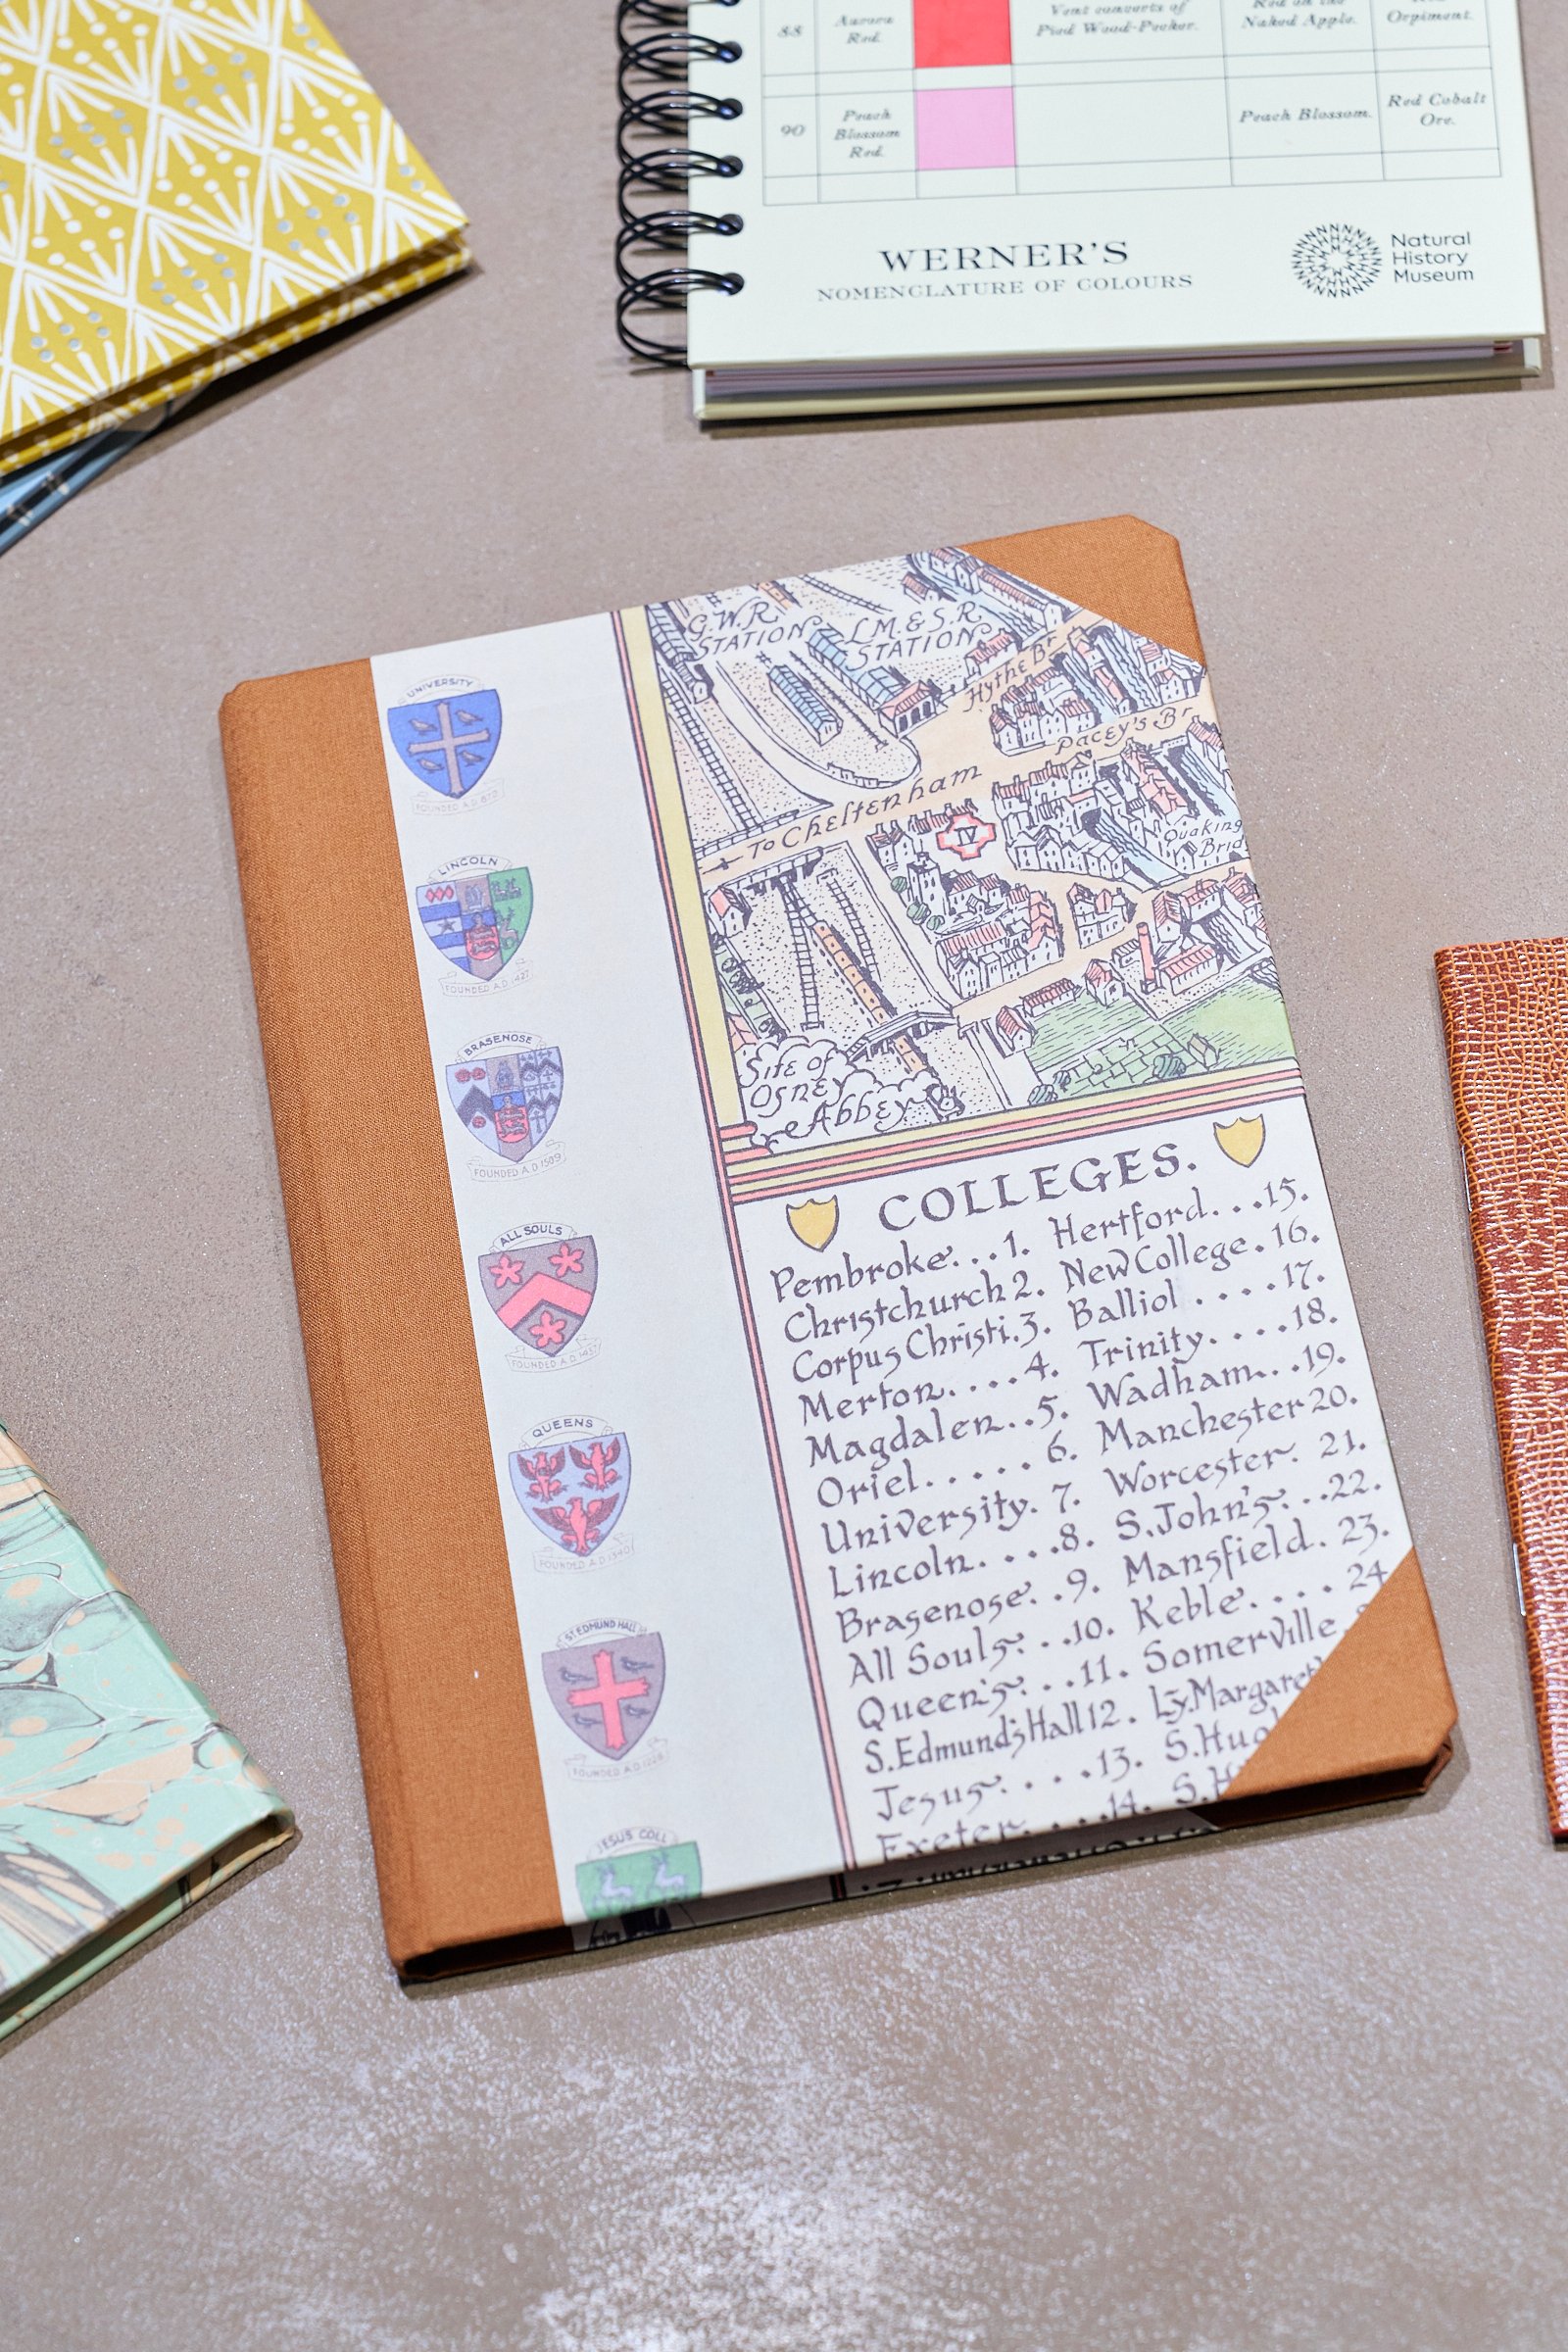 88
Aurora
Red.
Vent converts of
Pied Wood-Pecker.
Red on the
Naked Apple.
Orpiment.
90
Peach
Blossom
Red.
Peach Blossom.
Red Cobalt
Ore.
WERNER'S
NOMENCLATURE OF COLOURS
Natural
History
Museum
UNIVERSITY
FOUNDED A.D 872
LINCOLN
FOUNDED A.D. 1427
BRASENOSE
FOUNDED A.D 1509
ALL SOULS
FOUNDED A.D. 1437
QUEENS
FOUNDED A.D 1340
ST. EDMUND HALL
FOUNDED A.D
JESUS COLL
G.W.R
STATION
L.M.&S.R
STATION
Hythe Br
Pacey's Br
To Cheltenham
IV
Quaking
Bridg
Site of
Osney
Abbey
COLLEGES.
Pembroke...1. Hertford...15.
Christchurch 2. New College.16.
Corpus Christi.3. Balliol....17.
Merton....4. Trinity....18.
Magdalen..5. Wadham...19.
Oriel.....6. Manchester 20.
University.7. Worcester. 21.
Lincoln....8. S.John's...22.
Brasenose..9. Mansfield. 23.
All Souls...10. Keble.... 24
Queen's...11. Somerville.
S.Edmund's Hall 12. Ly.Margaret
Jesus....13. S.Hug
Exeter....14. S.H